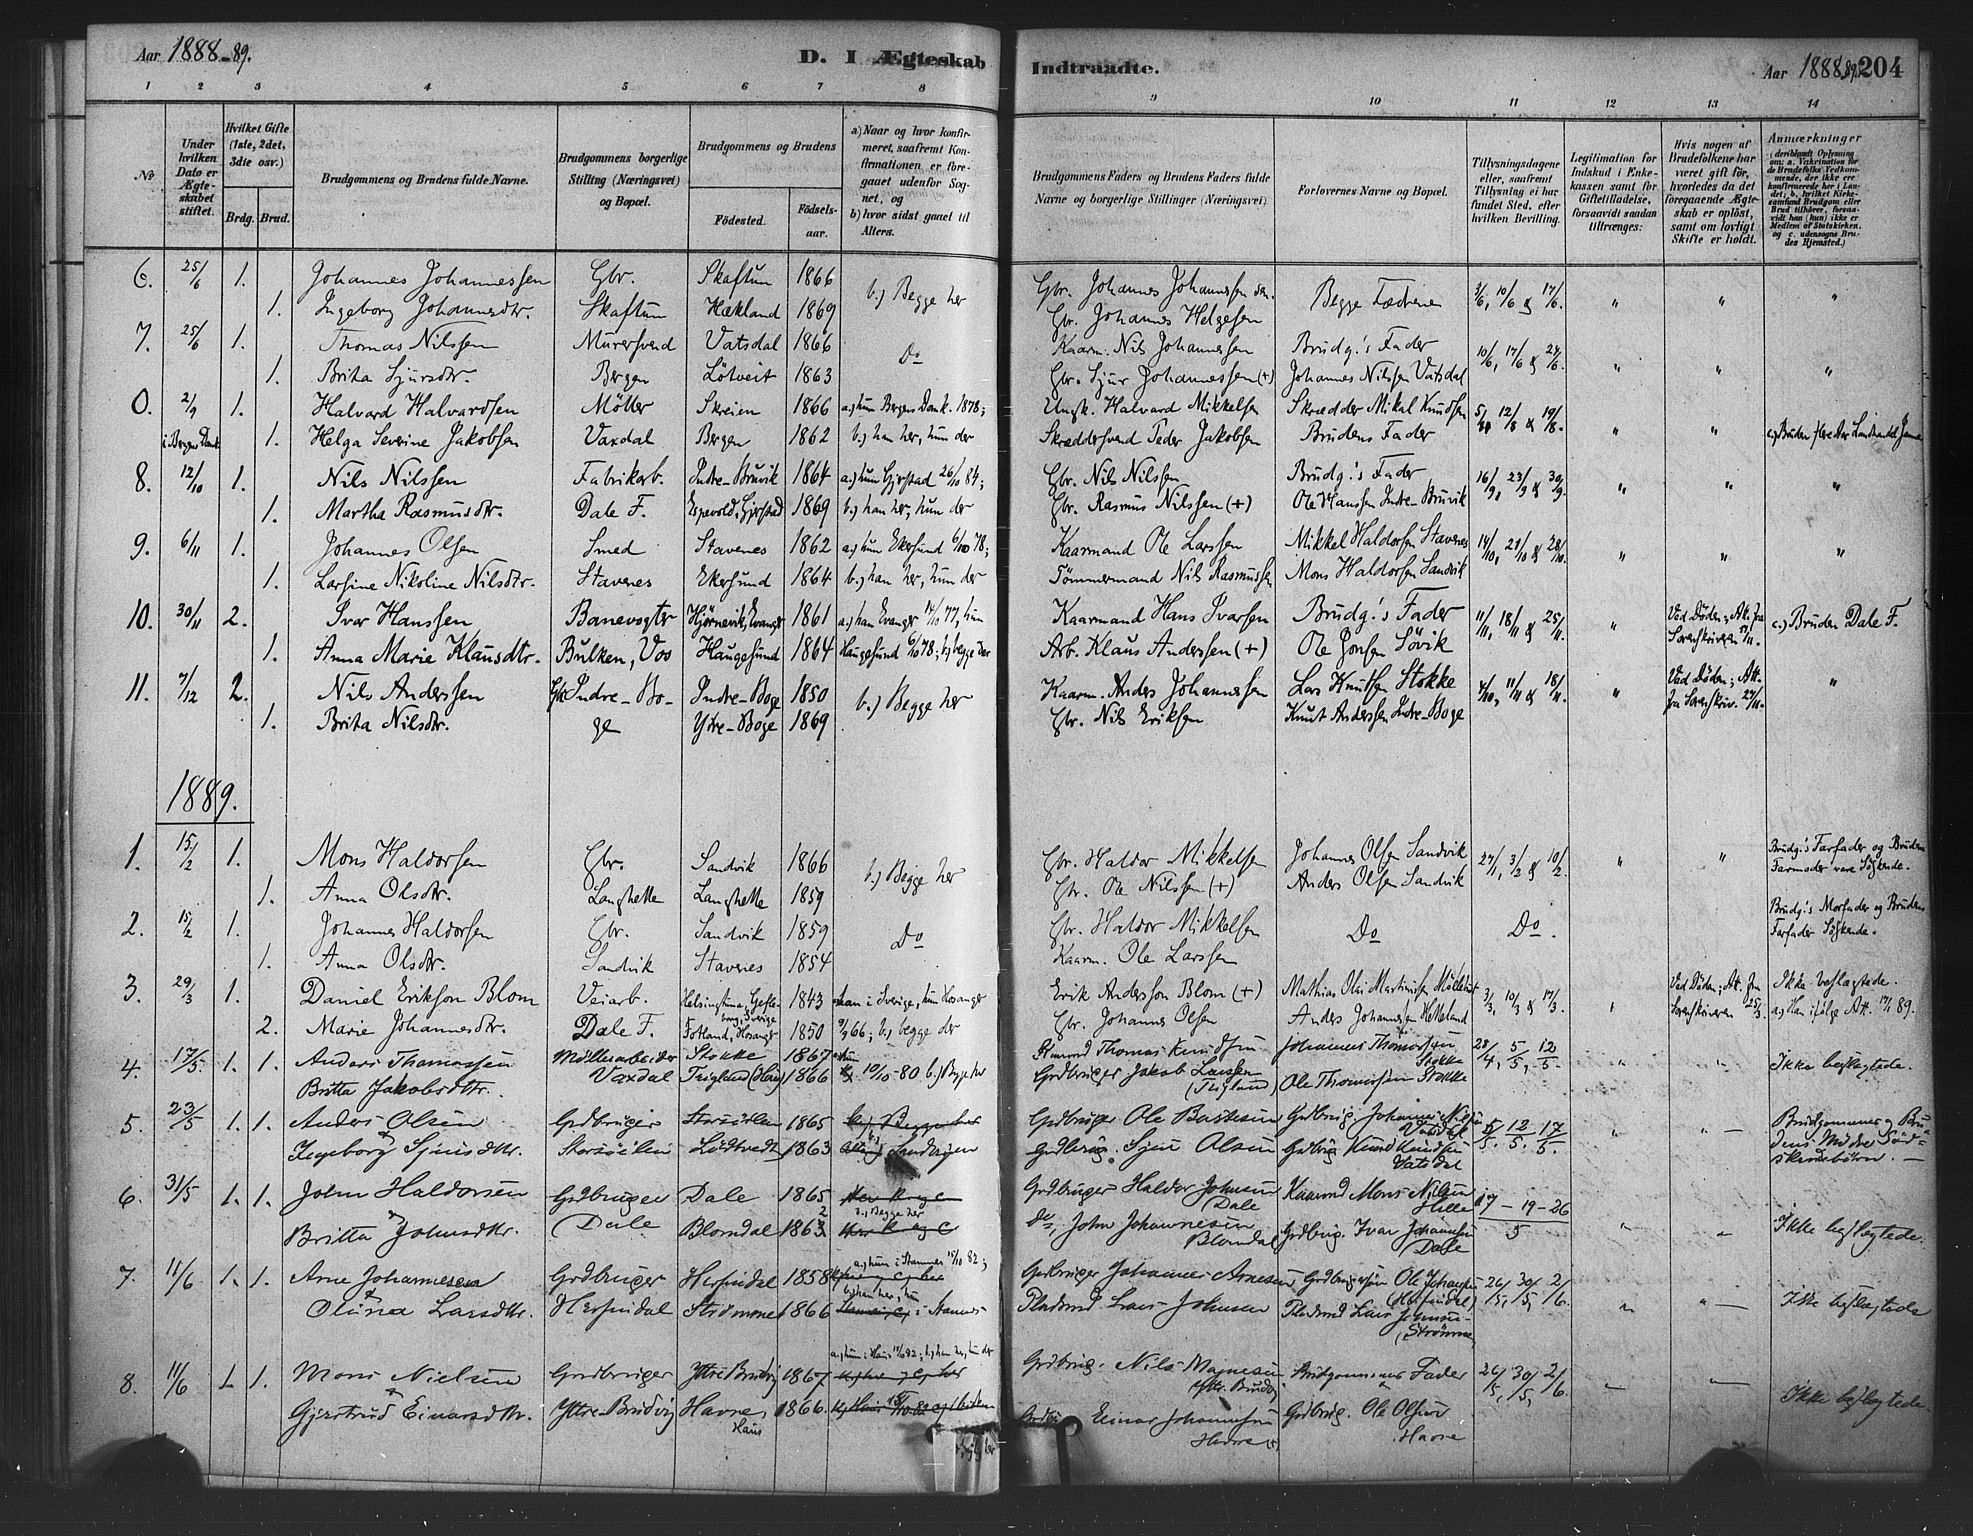 Aar 1888-89.
D. I Ægteskab Indtraadte.
Aar 1888-89. 204
1 2 3 4 5 6 7 8 9 10 11 12 13 14
No
Under hvilken Dato er Ægteskabet stiftet.
Hvilket Gifte (1ste, 2det, 3die osv.)
Brdg. Brud.
Brudgommens og Brudens fulde Navne.
Brudgommens borgerlige Stilling (Næringsvei) og Bopæl.
Brudgommens og Brudens
Fødested.
Fødselsaar.
a) Naar og hvor konfirmeret, saafremt Konfirmationen er foregaaet udenfor Sognet, og
b) hvor sidst gaaet til Alters.
Brudgommens Faders og Brudens Faders fulde Navne og borgerlige Stillinger (Næringsvei)
Forlovernes Navne og Bopæl.
Tillysningsdagene eller, saafremt Tillysning ei har fundet Sted, efter hvilken Bevilling.
Legitimation for Indskud i Enkekassen samt for Giftetilladelse, forsaavidt saadan tiltrænges:
Hvis nogen af Brudefolkene har været gift før, hvorledes da det foregaaende Ægteskab er opløst, samt om lovligt Skifte er holdt.
Anmærkninger (deriblandt Oplysning om: a. Vakcination for de Brudefolks Vedkommende, der ikke ere konfirmerede her i Landet, b. hvilket Kirkesamfund Brudgom eller Brud tilhører, forsaavidt han (hun) ikke er Medlem af Statskirken, og c. udensogns Brudes Hjemsted.)
6. 25/6 1. Johannes Johannessen Gbr. Skaftun 1866 b.) Begge her Gbr. Johannes Johannessen sen. Begge Fædrene 3/6, 10/6 & 17/6. " " "
1. Ingeborg Johannesdtr. Skaftun Hækland 1869 Gbr. Johannes Helgesen
7. 25/6 1. Thomas Nilssen Murersvend Vatsdal 1866 Do Kaarm. Nils Johannessen Brudg.'s Fader 10/6, 17/6 & 24/6. " " "
1. Brita Sjursdtr. Bergen Lötveit 1863 Gbr. Sjur Johannessen (+) Johannes Nilssen Vatsdal
0. 2/9 1. Halvard Halvardsen Möller Skreien 1866 a.) hun Bergens Domk. 1878; Ungk. Halvard Mikkelsen Skrædder Mikal Knudsen 5/8, 12/8 & 19/8. " "
i Bergens Domk. 1. Helga Severine Jakobsen Vaxdal Bergen 1862 b.) han her, hun der Skræddersvend Peder Jakobsen Brudens Fader
8. 12/10 1. Nils Nilssen Fabrikarb. Indre-Bruvik 1864 a.) hun Gjerstad 26/10 84; Gbr. Nils Nilssen Brudg.'s Fader 16/9, 23/9 & 30/9. " " "
1. Martha Rasmusdtr. Dale F. Espevold, Gjerstad 1869 b.) han her, hun der Gbr. Rasmus Nilssen (+) Ole Hanssen Indre-Bruvik
9. 6/11 1. Johannes Olsen Smed Stavenes 1862 a.) hun Ekersund 6/10 78; Kaarmand Ole Larssen Mikkel Haldorsen Stavenes 14/10, 21/10 & 28/10. " " "
1. Larsine Nikoline Nilsdtr. Stavenes Ekersund 1864 b.) han her, hun der Tömmermand Nils Rasmussen Mons Haldorsen Sandvik
10. 30/11 2. Ivar Hanssen Banevogter Hjörnevik, Evanger 1861 a.) han Evanger 14/10 77, hun Kaarmand Hans Ivarsen Brudg.'s Fader 11/11, 18/11 & 25/11. " Ved Döden; Att. fra Sorenskriveren c.) Bruden Dale F.
1. Anna Marie Klausdtr. Bulken, Vos Haugesund 1864 Haugesund 6/10 78; b.) begge der Arb. Klaus Anderssen (+) Ole Jonsen Sövik
11. 7/12 2. Nils Anderssen Gbr. Indre-Boge Indre-Boge 1850 b.) Begge her Kaarm. Anders Johannessen Lars Knutsen Stokke 4/10, 11/11 & 18/11. " Ved Döden; Att. fra Sorenskriv. 27/11. "
1. Brita Nilsdtr. Ytre-Boge 1869 Gbr. Nils Eriksen Knut Anderssen Indre-Boge
1889.
1. 15/2 1. Mons Haldorsen Gbr. Sandvik 1866 b.) Begge her Gbr. Haldor Mikkelsen Johannes Olsen Sandvik 27/1, 3/2 & 10/2. " " Brudg.'s Farfader og Brudens Farmoder vare Söskende.
1. Anna Olsdtr. Langhelle Langhelle 1859 Gbr. Ole Nilssen (+) Anders Olsen Sandvik
2. 15/2 1. Johannes Haldorsen Gbr. Sandvik 1859 Do Gbr. Haldor Mikkelsen Do Do. Brudg.'s Morfader og Brudens Farfader Söskende.
1. Anna Olsdtr. Sandvik Stavenes 1854 Kaarm. Ole Larssen
3. 29/3 1. Daniel Erikson Blom Veiarb. Helsingtuna, Gefleborg, Sverige 1843 han i Sverige, hun Hosanger Erik Andersson Blom (+) Mathias Olai Martinisen 3/3, 10/3 & 17/3. " Ved Döden; Att. fra Sorenskriveren 25/3. Ikke beslægtede.
2. Marie Johannesdtr. Dale F. Fotland, Hosanger 1850 66; b.) begge der Gbr. Johannes Olsen Anders Johannessen Helleland a.) Han ifølge Att. 89.
4. 17/5 1. 1. Anders Thomassen Möllerarbeider Stokke 1867 hun Thomas Knudsen Johannes Thomassen Stokke 28/4, 5/5, 12/5. " " Ikke beslægtede.
Britta Jakobsdtr. Vaxdal (Haus) 1866 10/10-80 b.) Begge her Grdbruger Jakob Larssen Ole Thomassen Stokke
5. 23/5 1. 1. Anders Olsen Grdbruger 1865 Begge her Grdbruger Ole Grdbrug. Johannes Nilsen Vatsdal 5/5. 12/5. 17/5. " Brudgommens og Brudens Mødre Sødskendebörn.
Ingeborg Sjursdtr. 1863 Sjur Olsen Grdbrug. Knud Knudsen Vatsdal
6. 31/5 1. 1. John Haldorsen Grdbruger Dale 1865 b.) Begge her Grdbruger Haldor Johnsen Dale Kaarmd Mons Nilsen Hille 17-19-26/5 " Ikke beslægtede.
& Britta Johnsdtr. Dale Blomdal 1862 do John Johannesen Blomdal Grdbrug. Ivar Johannessen Dale
7. 11/6 1. 1. Arne Johannesen Grdbruger Herfindal 1858 a.) hun i Stamnes 82; b.) han her, hun i Stamnes Grdbruger Johannes Arnesen Ole Johannessen (Herfindal) 26/5, 30/5, 2/6. " " Ikke beslægtede
& Olina Larsdtr. Herfindal Strömme 1866 Pladsmd Lars Johnsen Pladsmd Lars Johnsen (Strömme)
8. 11/6 1. 1. Mons Nielsen Grdbruger Yttre Brudvig 1867 a.) hun i Haus 82; b.) han her, hun der Grdbrug. Nils Magnesen Yttre Brudvig Brudgommens Fader 26/5, 30/5, 2/6. " " Ikke beslægtede.
& Gjertrud Einarsdtr. Yttre-Brudvig Havre, Haus 1866 Einar Johannessen Havre Grdbrug. Ole Olsen Havre